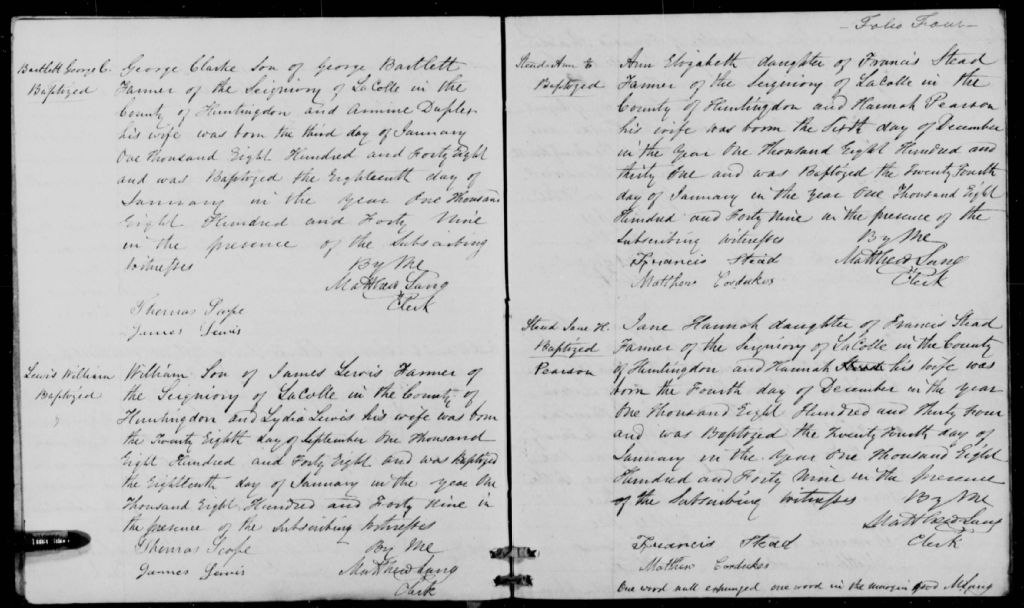 Bartlett George C.
Baptized
George Clarke Son of George Bartlett
Farmer of the Seigniory of LaColle in the
County of Huntingdon and Armine Dupler
his wife was born the third day of January
One Thousand Eight Hundred and Forty Eight
and was Baptized the Eighteenth day of
January in the year One Thousand
Eight Hundred and Forty Nine
in the presence of the Subscribing
Witnesses By Me
Matthew Lang
Clerk
Thomas Scope
James Lewis
Lewis William
Baptized
William Son of James Lewis Farmer of
the Seigniory of LaColle in the County of
Huntingdon and Lydia Lewis his wife was born
the Twenty Eighth day of September One Thousand
Eight Hundred and Forty Eight and was Baptized
the Eighteenth day of January in the year One
Thousand Eight Hundred and Forty Nine in
the presence of the Subscribing Witnesses
Thomas Scope By Me
James Lewis Matthew Lang
Clerk
Folio Four
Stead Ann E
Baptized
Ann Elizabeth daughter of Francis Stead
Farmer of the Seigniory of LaColle in the
County of Huntingdon and Hannah Pearson
his wife was born the Sixth day of December
in the Year One Thousand Eight Hundred and
thirty One and was Baptized the Twenty Fourth
day of January in the year One Thousand Eight
Hundred and Forty Nine in the presence of the
Subscribing Witnesses By Me
Francis Stead Matthew Lang
Matthew Cordukes Clerk
Stead Jane H.
Baptized
Pearson
Jane Hannah daughter of Francis Stead
Farmer of the Seigniory of LaColle in the County
of Huntingdon and Hannah Stead his wife was
born the Fourth day of December in the year
One Thousand Eight Hundred and Thirty Four
and was Baptized the Twenty Fourth day of
January in the Year One Thousand Eight
Hundred and Forty Nine in the presence
of the Subscribing Witnesses By Me
Matthew Lang
Francis Stead Clerk
Matthew Cordukes
One word null expunged one word in the margin good M Lang